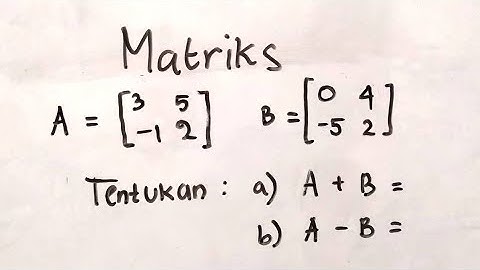 Matriks
A = [3 5
-1 2] B = [0 4
-5 2]
Tentukan : a) A + B =
b) A - B =